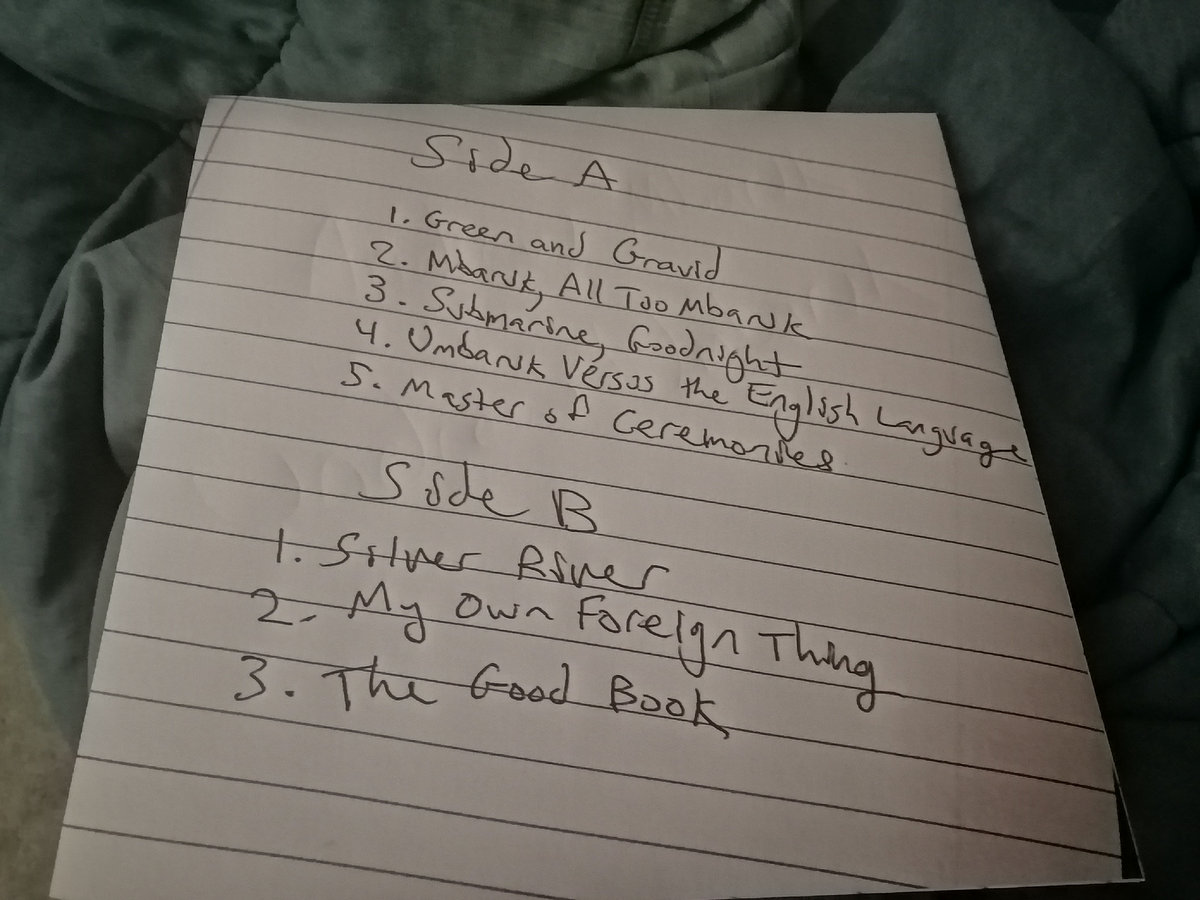 Side A
1. Green and Gravid
2. Mbank, All Too Mbank
3. Submarine, Goodnight
4. Umbank Versus the English Language
5. Master of Ceremonies
Side B
1. Silver River
2. My Own Foreign Thing
3. The Good Book